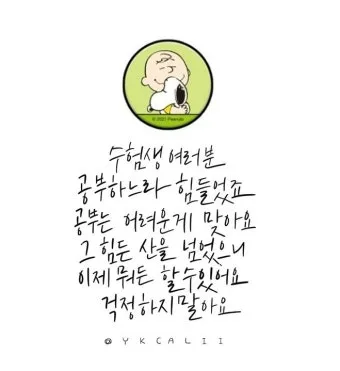 © 2021 Peanuts
수험생 여러분
공부하느라 힘들었죠
공부는 어려운게 맞아요
그 힘든 산을 넘었으니
이제 뭐든 할수있어요
걱정하지말아요
@YKCALII